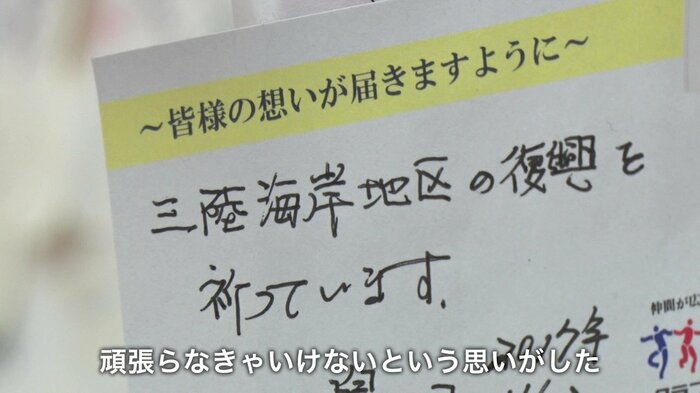 ～皆様の想いが届きますように～
三陸海岸地区の復興を
祈っています。
仲間が広
頑張らなきゃいけないという思いがした